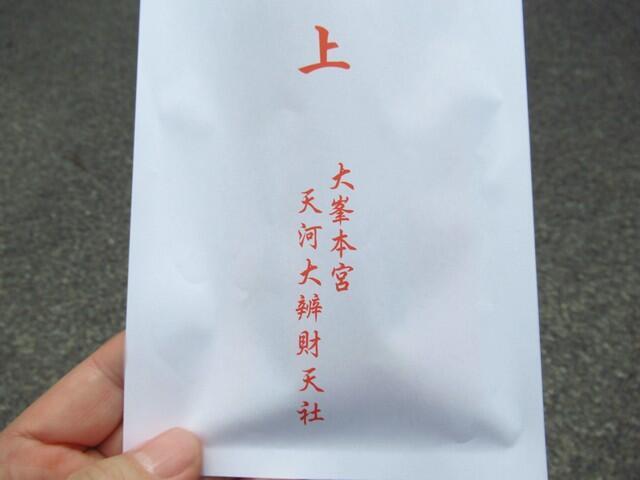 上
大峯本宮
天河大辨財天社